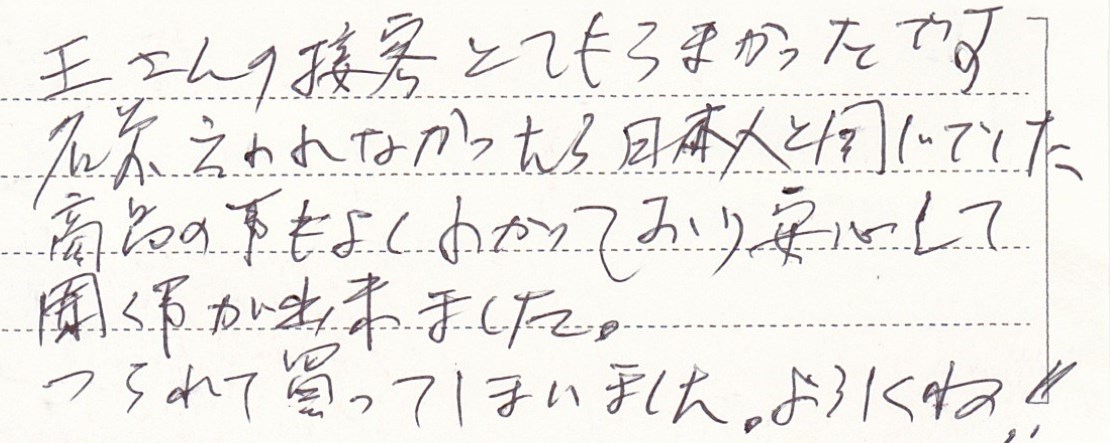 王さんの接客とてもうまかったです
名前言われなかったら日本人と同じでした
商品の事もよくわかっており安心して
聞く事が出来ました。
つられて買ってしまいました。よろしくね!!